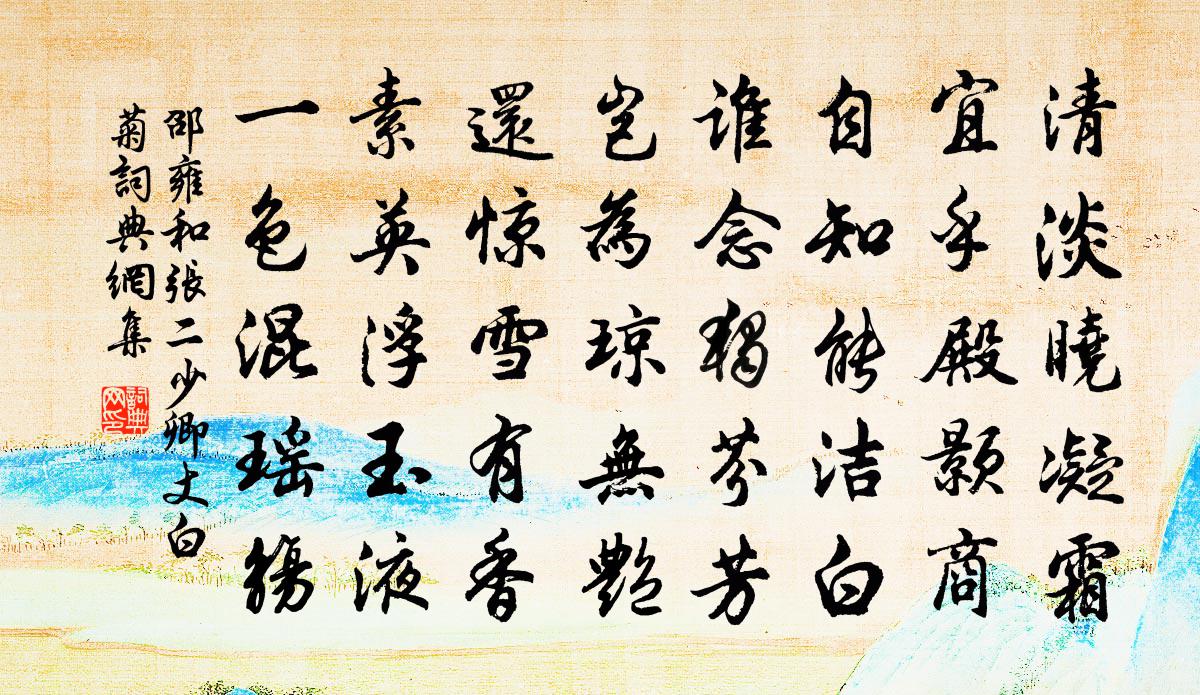 清淡曉凝霜
宜乎殿顥商
自知能洁白
谁念獨芬芳
岂為琼無艷
還惊雪有香
素英浮玉液
一色混瑶觴
邵雍和張二少卿丈白
菊詞典網集
詞典网印